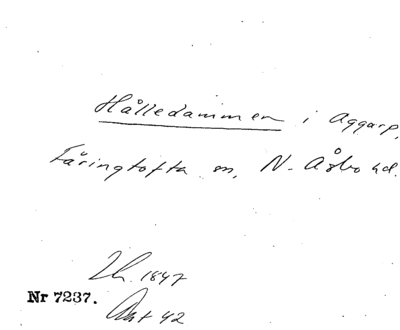 Hålledammen i Aggarp,
Färingtofta sn, N. Åsbo hd.
Lh. 1847
Nr 7237.
Akt 42